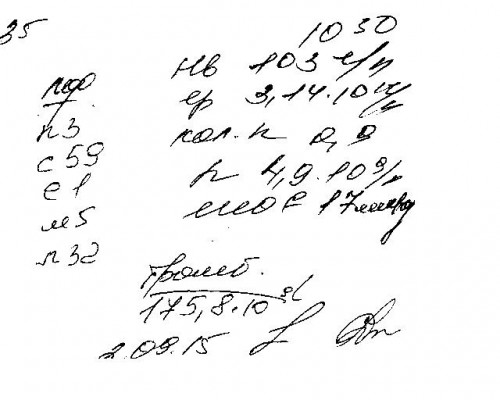 35
1030
Нв 103 г/л
эр 3,14.10¹²/л
цв.п 0,9
л 4,9.10⁹/л
СОЭ 17 мм/ч
п3
с59
е1
м5
л32
тромб.
175,8.10⁹/л
2.09.15